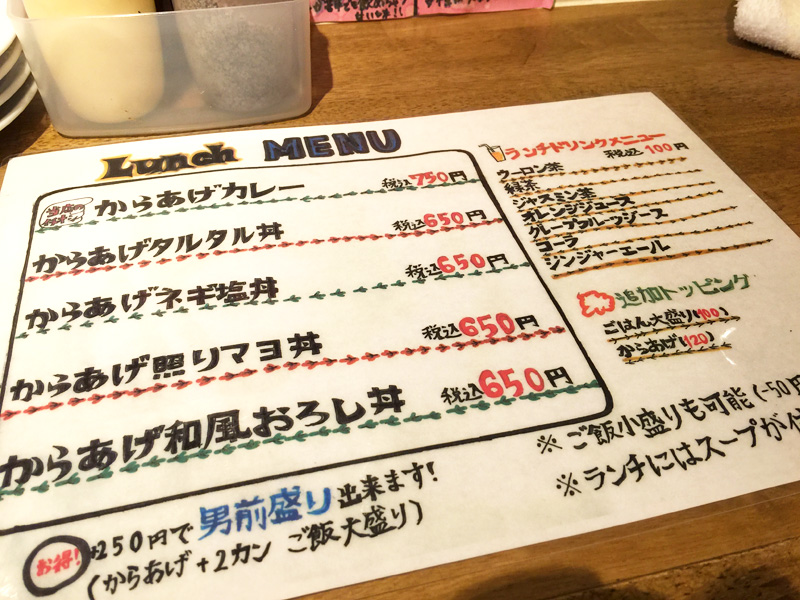 Lunch MENU
当店のイチオシ
からあげカレー 税込750円
からあげタルタル丼 税込650円
からあげネギ塩丼 税込650円
からあげ照りマヨ丼 税込650円
からあげ和風おろし丼 税込650円
お得! +250円で男前盛り出来ます!
(からあげ+2カン ご飯大盛り)
ランチドリンクメニュー
税込100円
ウーロン茶
緑茶
ジャスミン茶
オレンジジュース
グレープフルーツジュース
コーラ
ジンジャーエール
追加トッピング
ごはん大盛り(100)
からあげ(120)
※ご飯小盛りも可能(-50円
※ランチにはスープが付